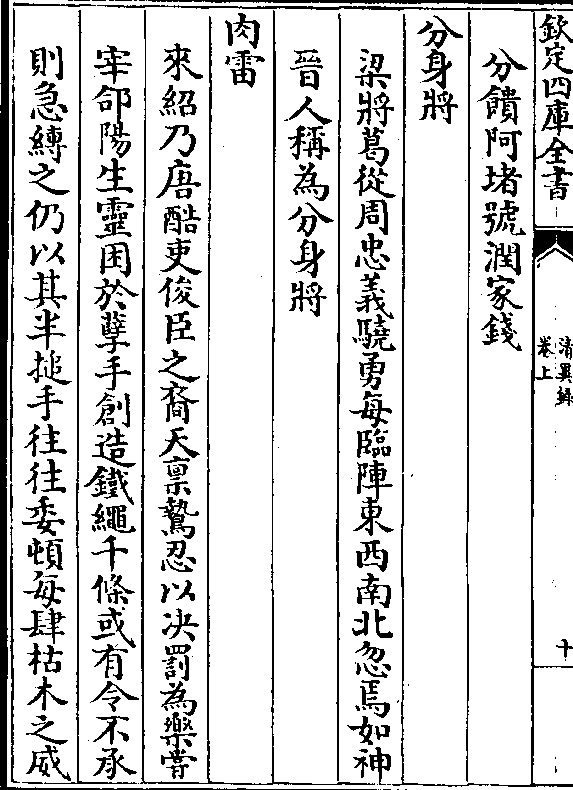 欽定四庫全書
清異錄
卷上
十
分饋阿堵號潤家錢
分身將
梁將葛從周忠義驍勇每臨陣東西南北忽焉如神
晉人稱為分身將
肉雷
來紹乃唐酷吏俊臣之裔天禀鷙忍以决罰為樂嘗
宰郃陽生靈困於孽手創造鐵繩千條或有令不承
則急縳之仍以其半搥手往往委頓每肆枯木之威